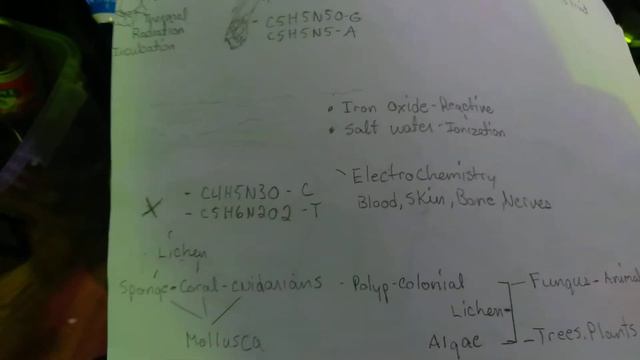 Thermal
Radiation
Incubation
- C5H5N5O-G
C5H5N5-A
• Iron Oxide-Reactive
• Salt water-Ionization
ElectroChemistry
Blood, Skin, Bone Nerves
X
- C4H5N3O-C
- C5H6N2O2-T
Lichen
Sponge-Coral-cnidarians - Polyp-Colonial
Mollusca
Fungus-Animal
Lichen
Algae
Trees, Plants